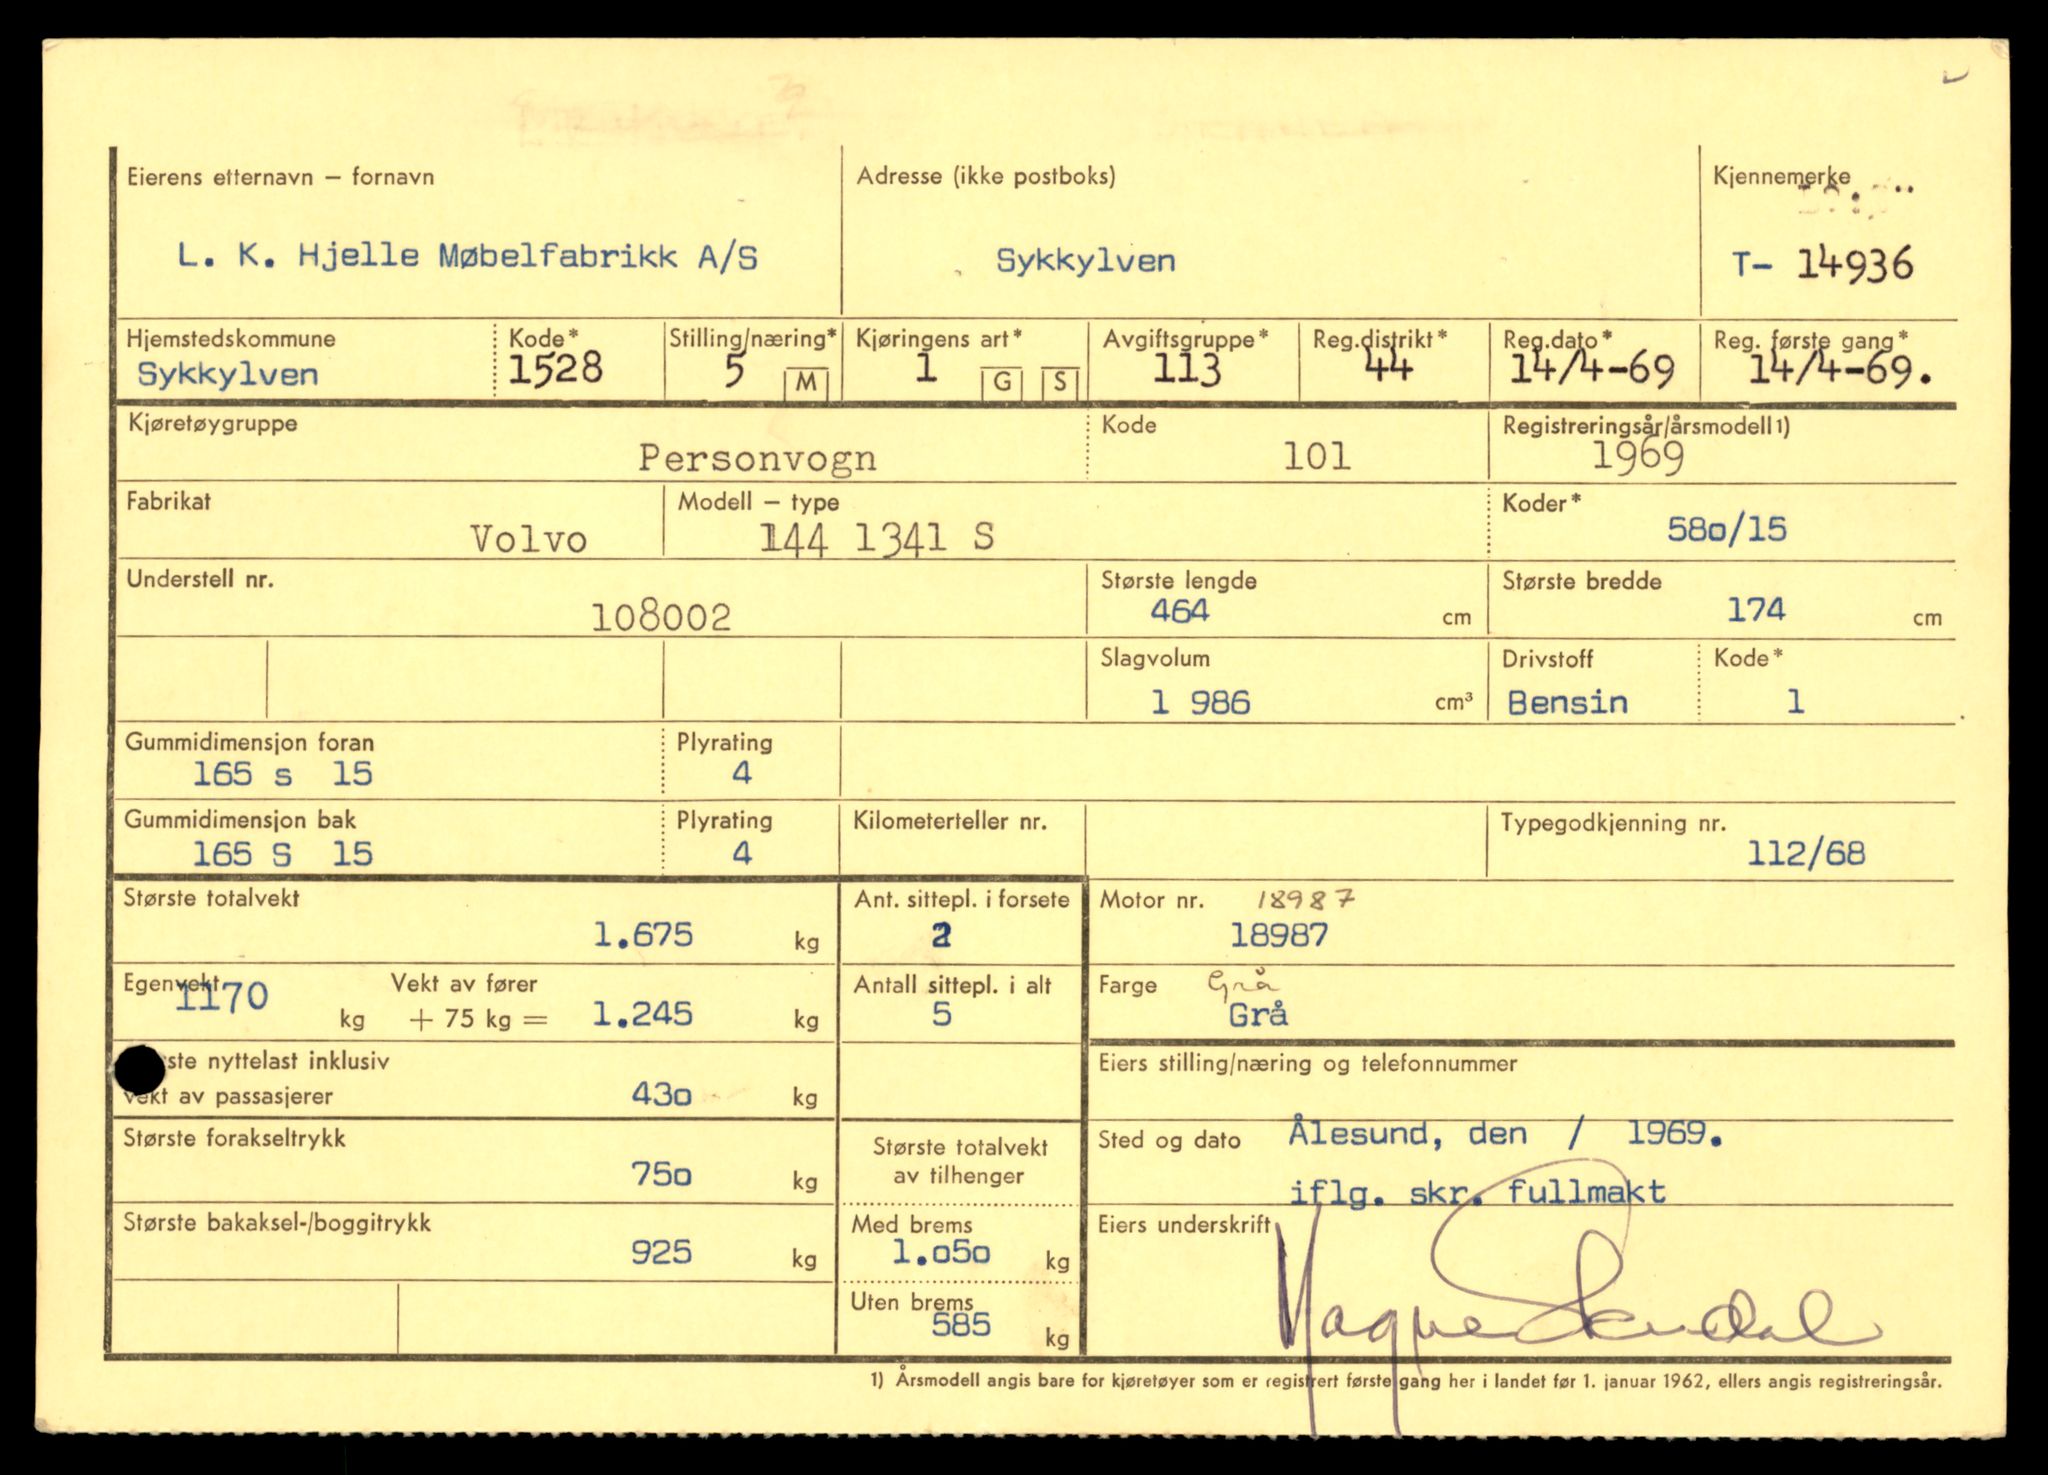 Eierens etternavn – fornavn
L. K. Hjelle Møbelfabrikk A/S
Adresse (ikke postboks)
Sykkylven
Kjennemerke
T- 14936
Hjemstedskommune
Sykkylven
Kode*
1528
Stilling/næring*
5 M
Kjøringens art*
1 G S
Avgiftsgruppe*
113
Reg.distrikt*
44
Reg.dato*
14/4-69
Reg. første gang*
14/4-69.
Kjøretøygruppe
Personvogn
Kode
101
Registreringsår/årsmodell1)
1969
Fabrikat
Volvo
Modell – type
144 1341 S
Koder*
580/15
Understell nr.
108002
Største lengde
464 cm
Største bredde
174 cm
Slagvolum
1 986 cm³
Drivstoff
Bensin
Kode*
1
Gummidimensjon foran
165 s 15
Plyrating
4
Gummidimensjon bak
165 S 15
Plyrating
4
Kilometerteller nr.
Typegodkjenning nr.
112/68
Største totalvekt
1.675 kg
Ant. sittepl. i forsete
2
Motor nr. 18987
18987
Egenvekt
1170 kg
Vekt av fører
+ 75 kg = 1.245 kg
Antall sittepl. i alt
5
Farge Grå
Grå
ste nyttelast inklusiv
vekt av passasjerer 430 kg
Eiers stilling/næring og telefonnummer
Største forakseltrykk
750 kg
Største totalvekt
av tilhenger
Sted og dato Ålesund, den / 1969.
iflg. skr. fullmakt
Største bakaksel-/boggitrykk
925 kg
Med brems
1.050 kg
Uten brems
585 kg
Eiers underskrift
Magne
1) Årsmodell angis bare for kjøretøyer som er registrert første gang her i landet før 1. januar 1962, ellers angis registreringsår.